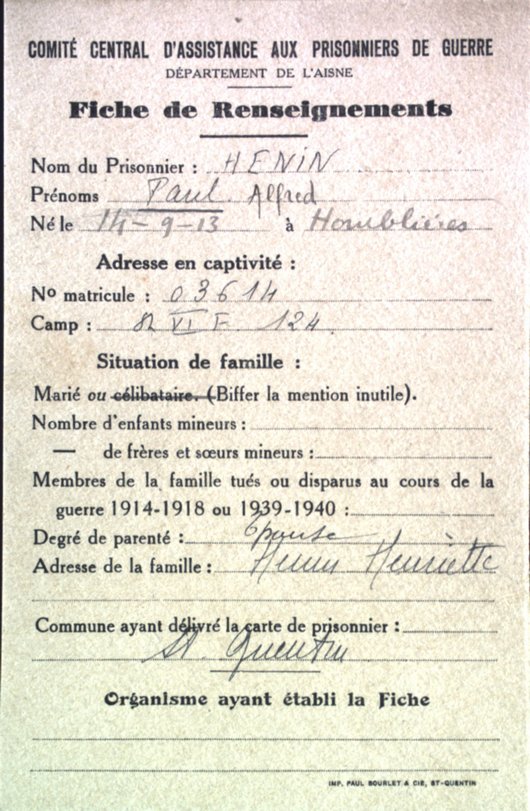 COMITÉ CENTRAL D'ASSISTANCE AUX PRISONNIERS DE GUERRE
DÉPARTEMENT DE L'AISNE
Fiche de Renseignements
Nom du Prisonnier : HENIN
Prénoms Paul Alfred
Né le 14-9-13 à Homblières
Adresse en captivité :
No matricule : 03614
Camp : VI F 124
Situation de famille :
Marié ou célibataire. (Biffer la mention inutile).
Nombre d'enfants mineurs :
— de frères et sœurs mineurs :
Membres de la famille tués ou disparus au cours de la
guerre 1914-1918 ou 1939-1940 :
Degré de parenté : Epouse
Adresse de la famille : Henin Henriette
Commune ayant délivré la carte de prisonnier :
St Quentin
Organisme ayant établi la Fiche
IMP. PAUL BOURLET & CIE, ST-QUENTIN